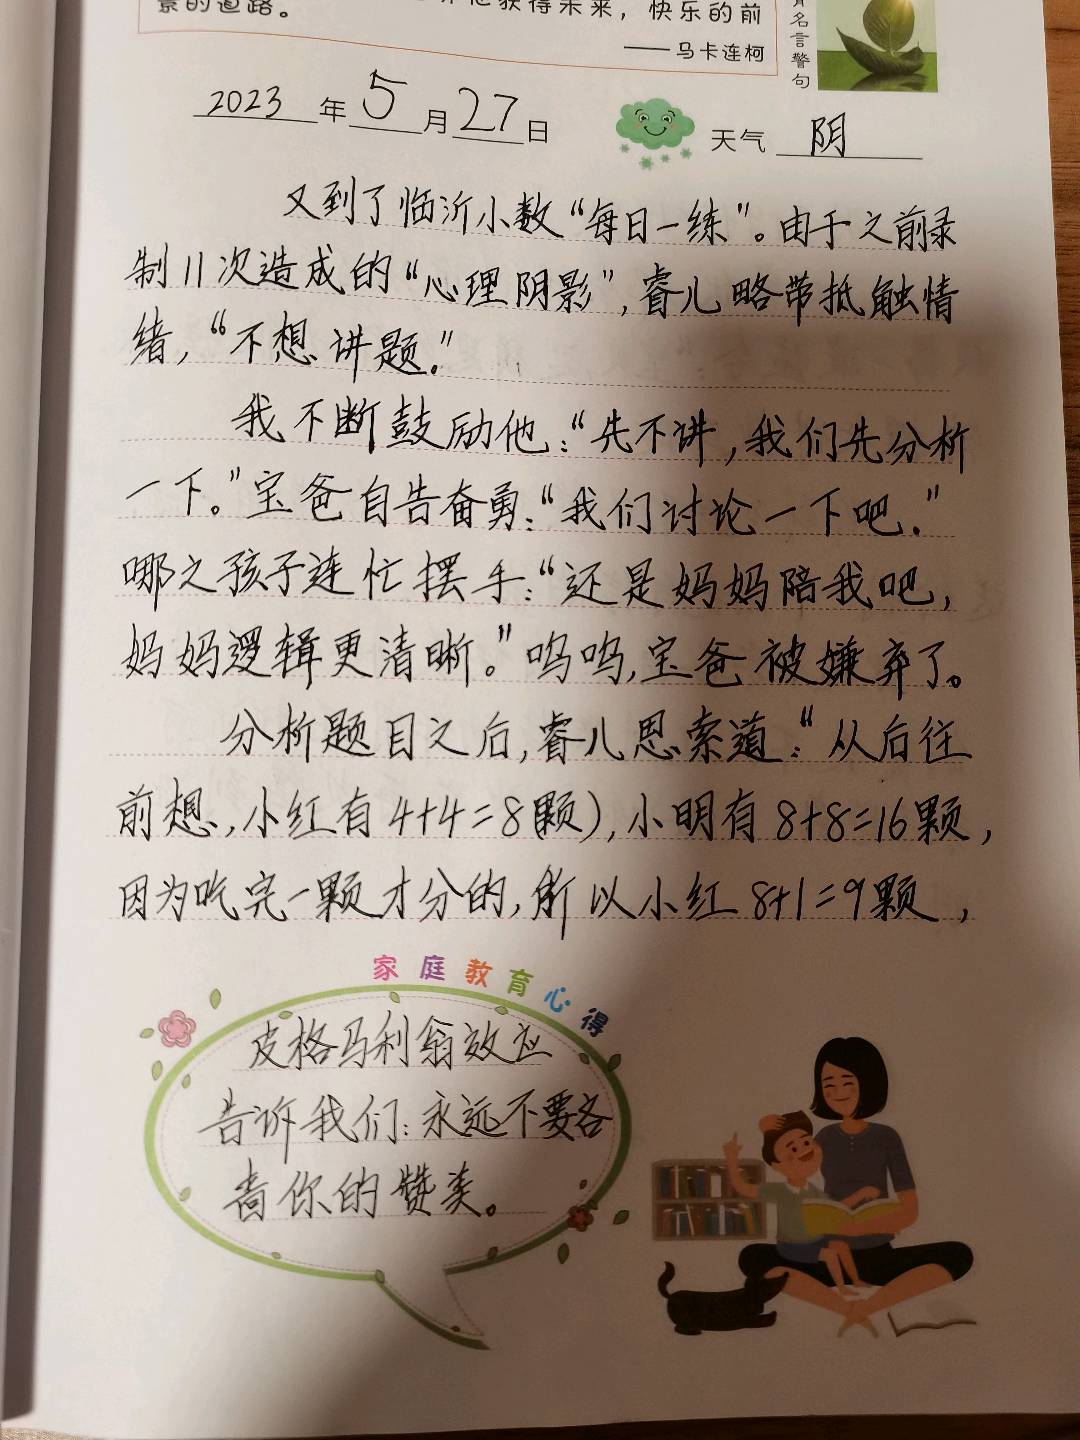 景的道路。
获得未来，快乐的前
——马卡连柯
名言警句
2023年5月27日
天气 阴
又到了临沂小数“每日一练”。由于之前录
制11次造成的“心理阴影”，睿儿略带抵触情
绪，“不想讲题。”
我不断鼓励他：“先不讲，我们先分析
一下。”宝爸自告奋勇：“我们讨论一下吧.”
哪之孩子连忙摆手：“还是妈妈陪我吧，
妈妈逻辑更清晰。”呜呜，宝爸被嫌弃了。
分析题目之后，睿儿思索道：“从后往
前想，小红有4+4=8(颗)，小明有8+8=16颗，
因为吃完一颗才分的，所以小红8+1=9颗，
家庭教育心得
皮格马利翁效应
告诉我们：永远不要吝
啬你的赞美。